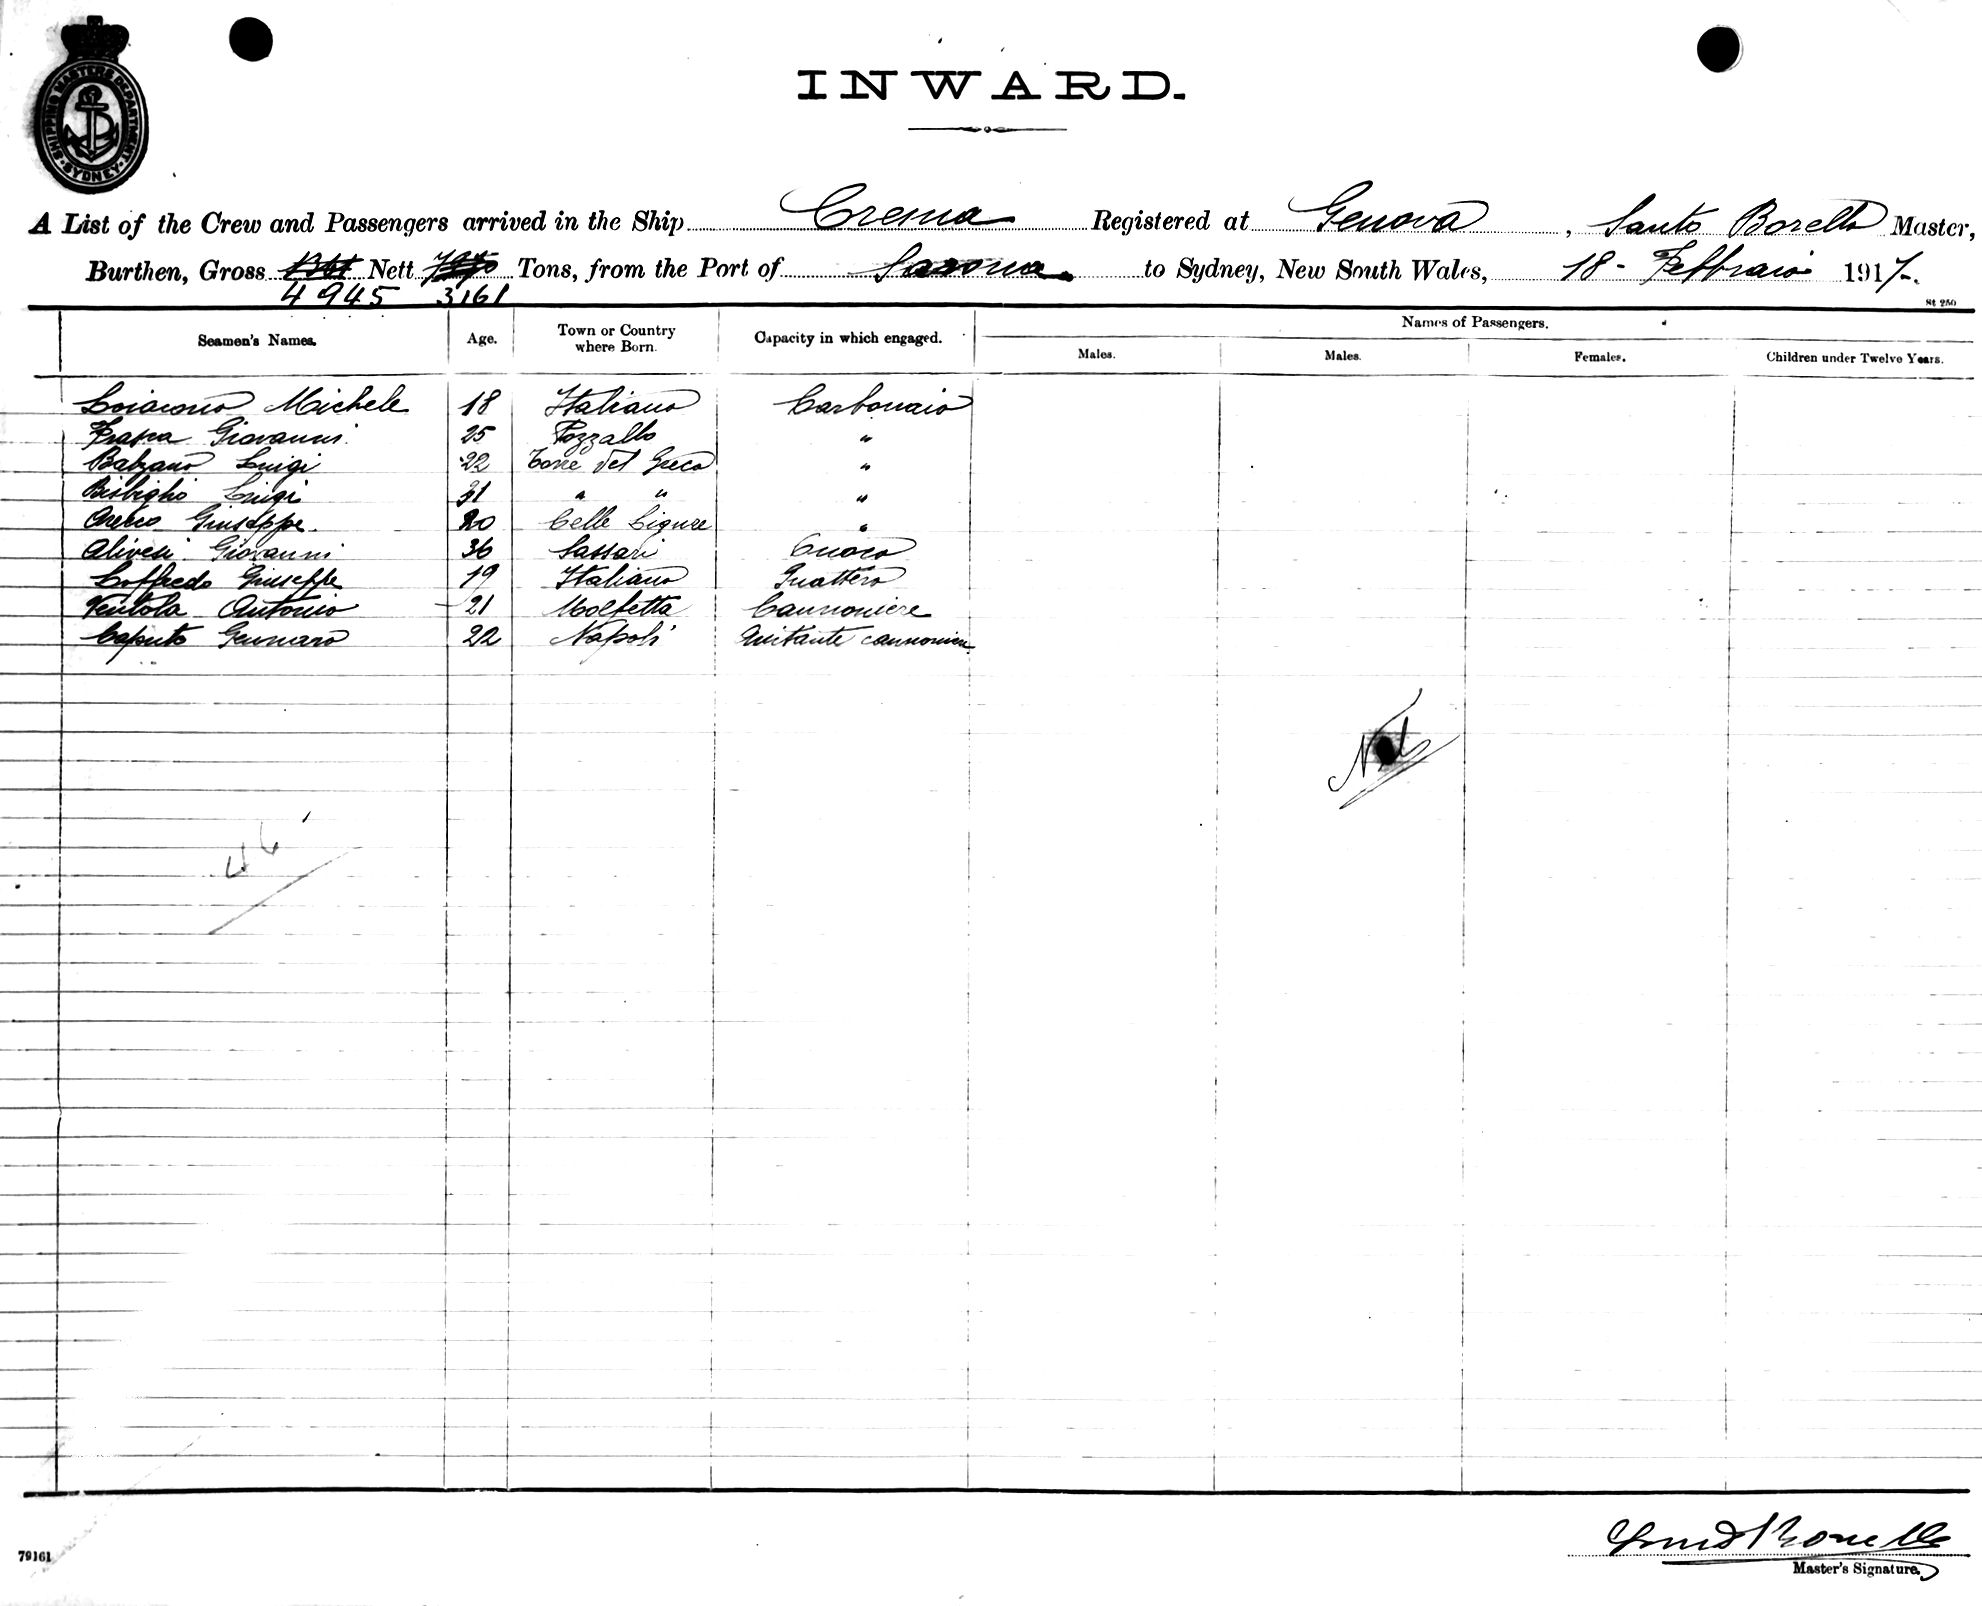 SHIPPING MASTERS DEPARTMENT
SYDNEY
INWARD.
A List of the Crew and Passengers arrived in the Ship Cresma Registered at Genova, Santo Borello Master,
Burthen, Gross Nett Tons, from the Port of Savona to Sydney, New South Wales, 18 - Febbraio 1917.
4945 3161
St 250
Seamen's Names. Age. Town or Country where Born. Capacity in which engaged. Names of Passengers.
Males. Males. Females. Children under Twelve Years.
Loiacono Michele 18 Italiano Carbonaio
Frasca Giovanni 25 Pozzallo "
Balzano Luigi 22 Torre del Greco "
Bisbiglio Luigi 31 " " "
Arecco Giuseppe. 20 Celle Ligure "
Alivesi Giovanni 36 Sassari Cuoco
Loffredo Giuseppe 19 Italiano Guattero
Ventola Antonio 21 Molfetta Cannoniere
Caputo Gennaro 22 Napoli cannoniere
Nil
46
Master's Signature.
79161